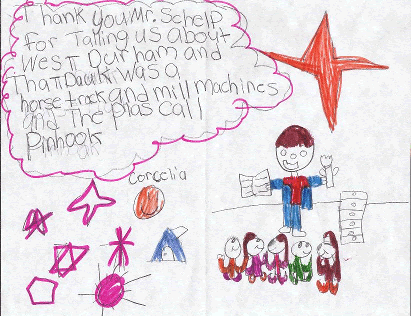 Thank you Mr. Schelp
for Talling us about
West Durham and
That was a
horse track and mill machines
and The plas call
Pinhook
Corcelia